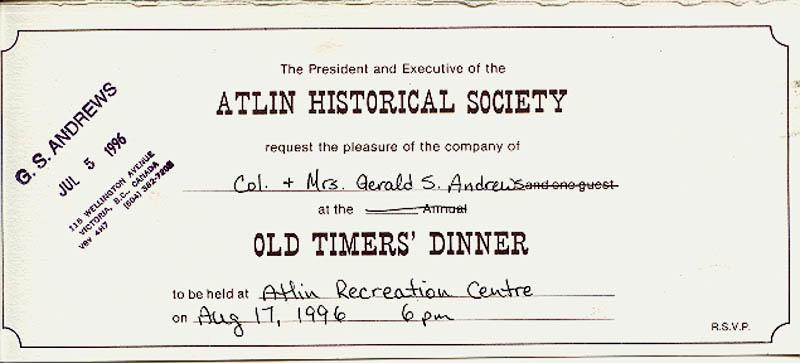 The President and Executive of the
ATLIN HISTORICAL SOCIETY
request the pleasure of the company of
Col. + Mrs. Gerald S. Andrews and one guest
at the Annual
OLD TIMERS' DINNER
to be held at Atlin Recreation Centre
on Aug 17, 1996 6 pm
R.S.V.P.
G. S. ANDREWS
JUL 5 1996
115 WELLINGTON AVENUE
VICTORIA, B.C., CANADA
V8V 4H7 (604) 382-7202